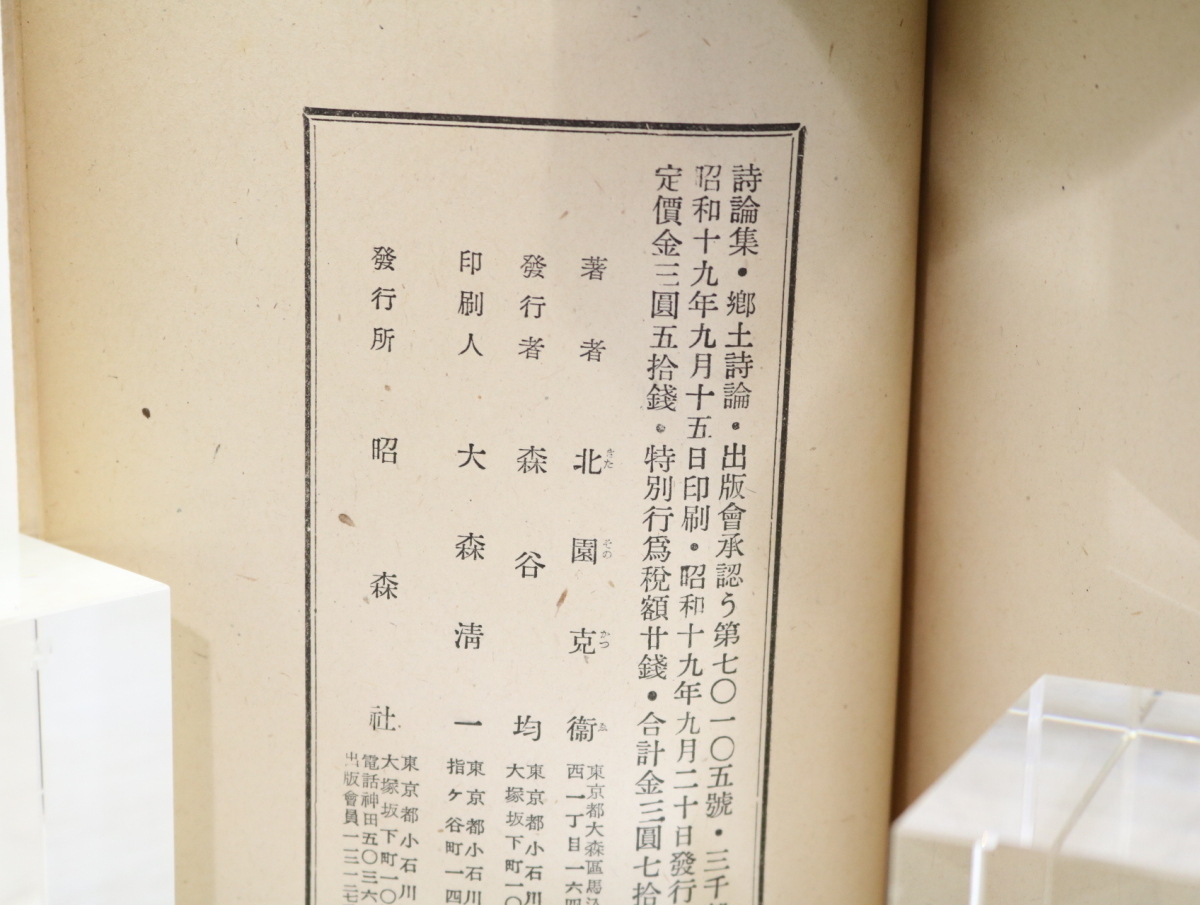 詩論集・鄕土詩論・出版會承認う第七〇一〇五號・三千
昭和十九年九月十五日印刷・昭和十九年九月二十日發行
定價金三圓五拾錢・特別行爲稅額廿錢・合計金三圓七拾
著者 北園克衞 東京都大森區馬込
きた その かつ ゑ
西一丁目一六四
發行者 森谷均 東京都小石川
大塚坂下町一〇
印刷人 大森淸一 東京都小石川
指ケ谷町一四
發行所 昭森社 東京都小石川
大塚坂下町一〇
電話神田五〇三六
出版會員一三一二七